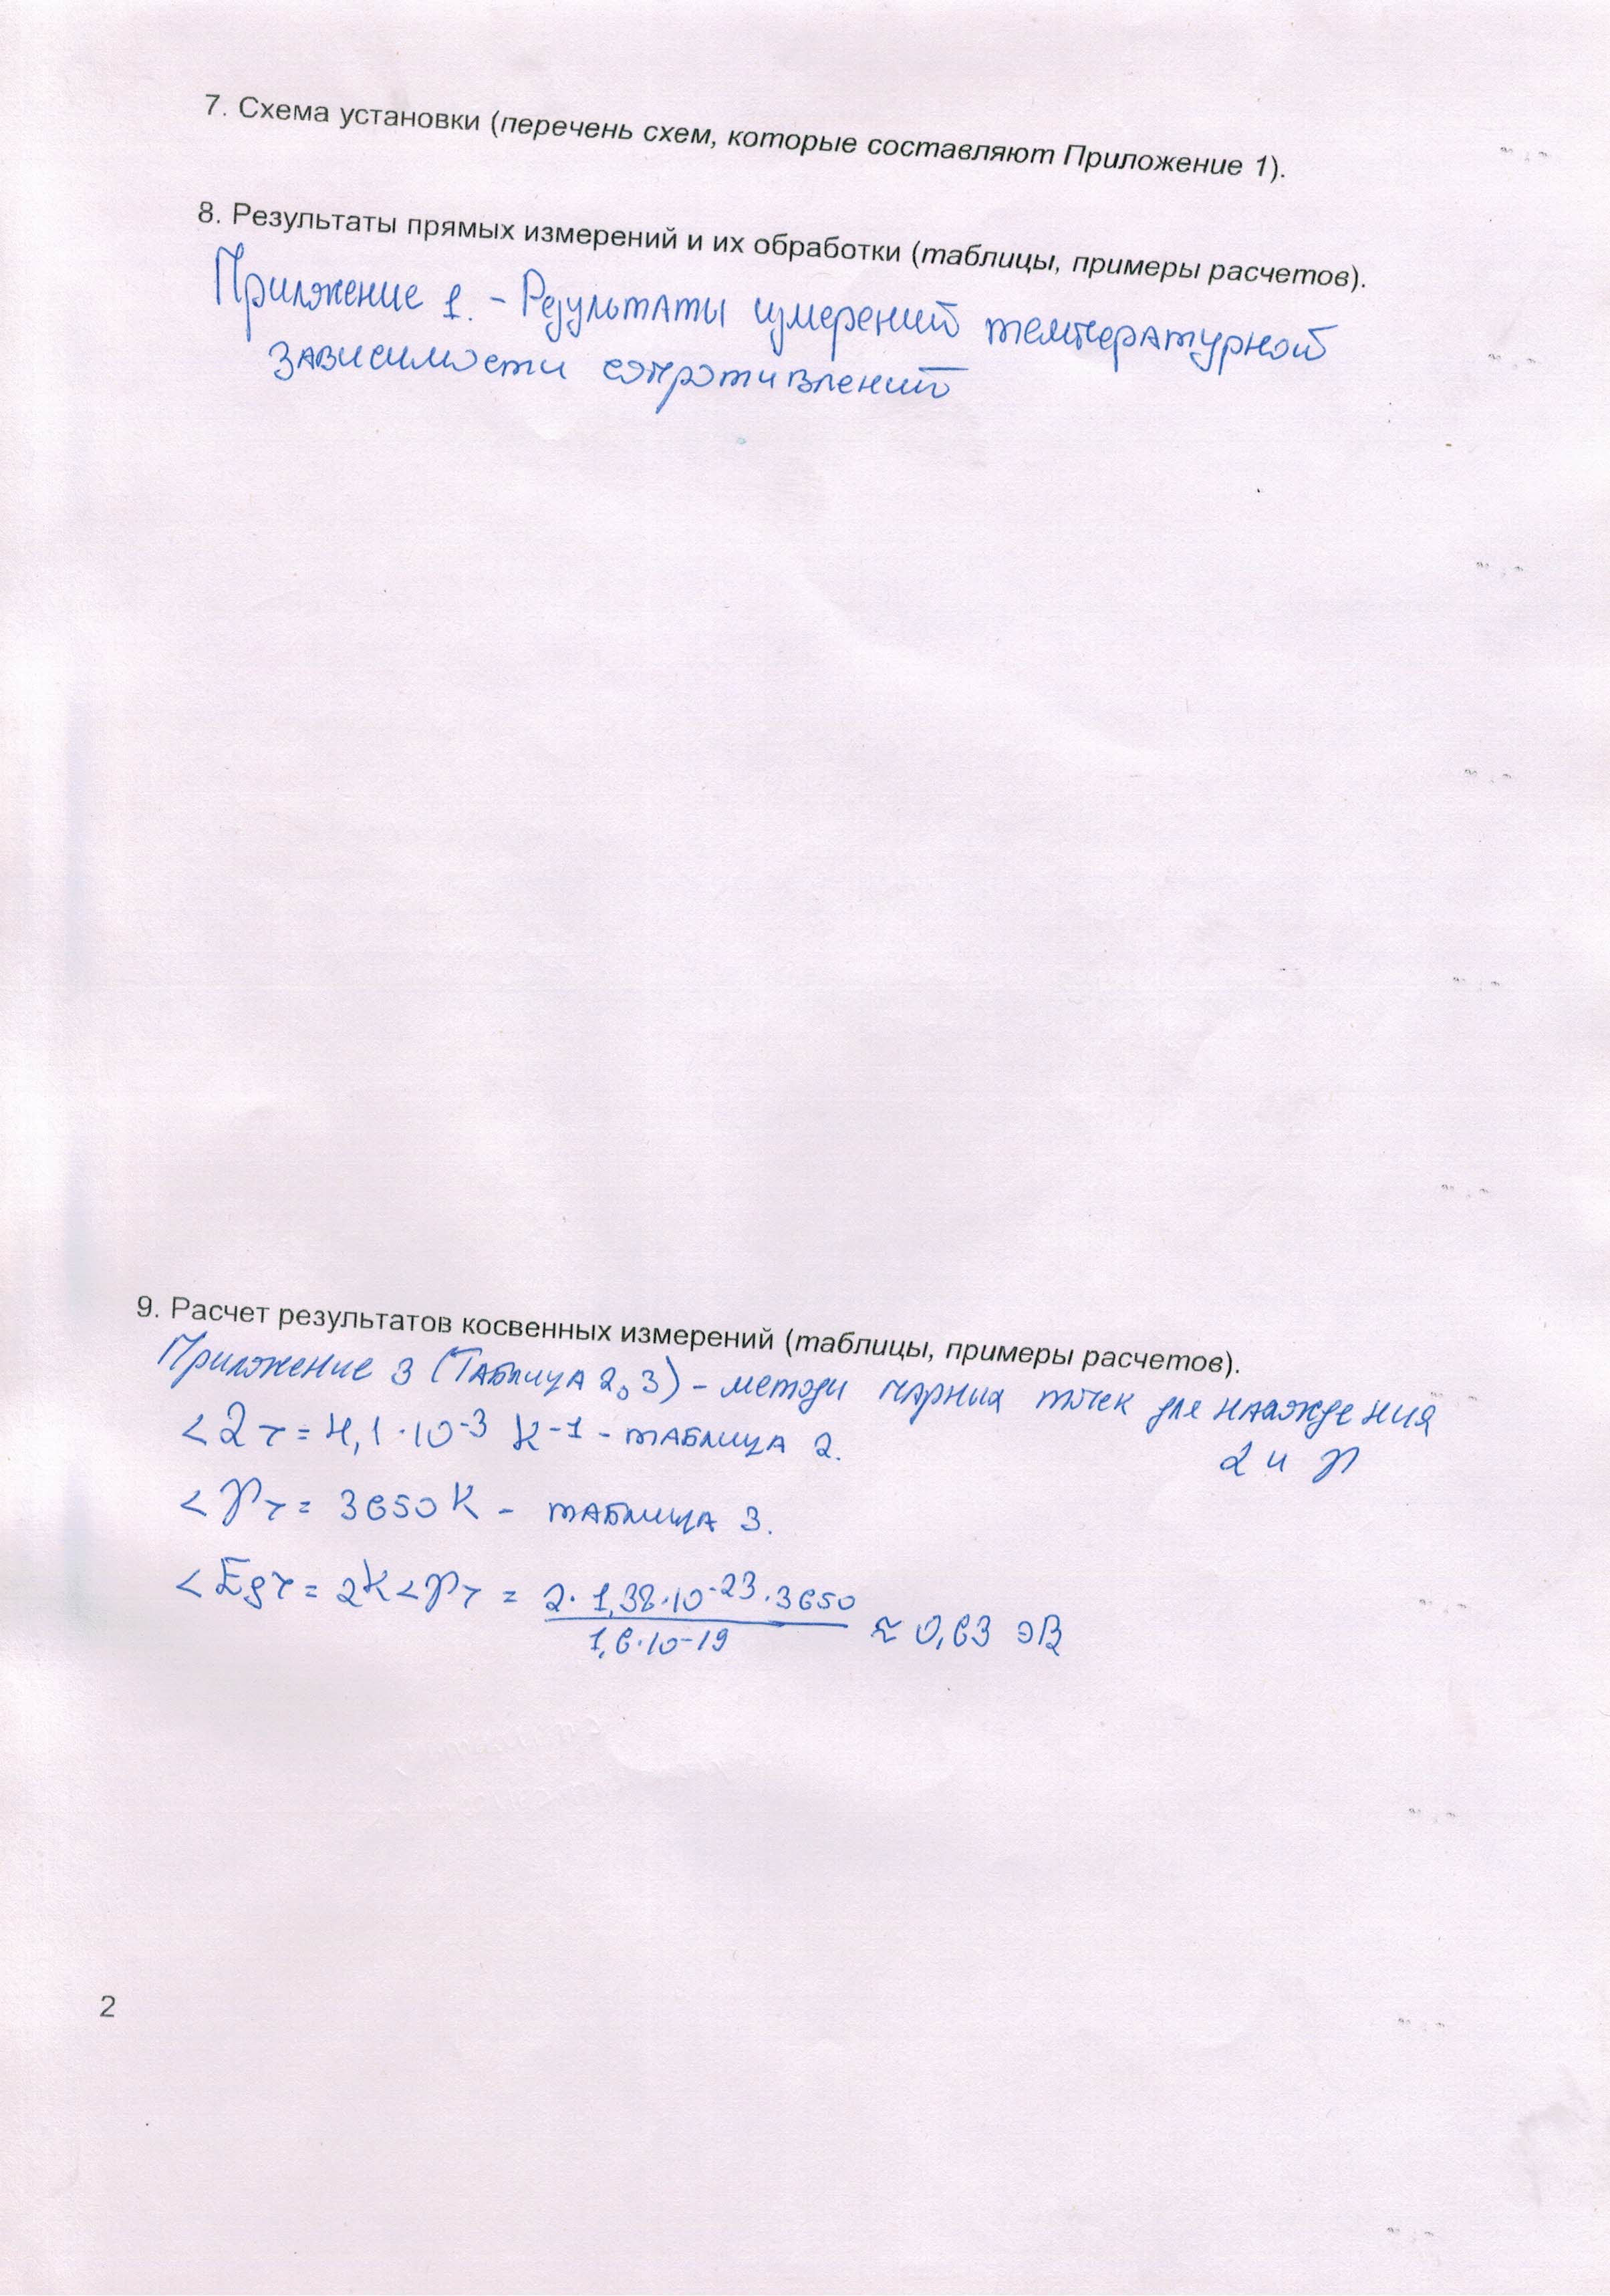 7. Схема установки (перечень схем, которые составляют Приложение 1).
8. Результаты прямых измерений и их обработки (таблицы, примеры расчетов).
Прилжение 1. - Результаты измерений температурной
зависимости сопротивлений
9. Расчет результатов косвенных измерений (таблицы, примеры расчетов).
Приложение 3 (Таблица 2, 3) - методы парных точек для нахождения
α и γ
<α> = 4,1·10⁻³ К⁻¹ - таблица 2.
<γ> = 3650 К - таблица 3.
<Eg> = 2k<γ> = 2·1,38·10⁻²³·3650 / 1,6·10⁻¹⁹ ≈ 0,63 эВ
2